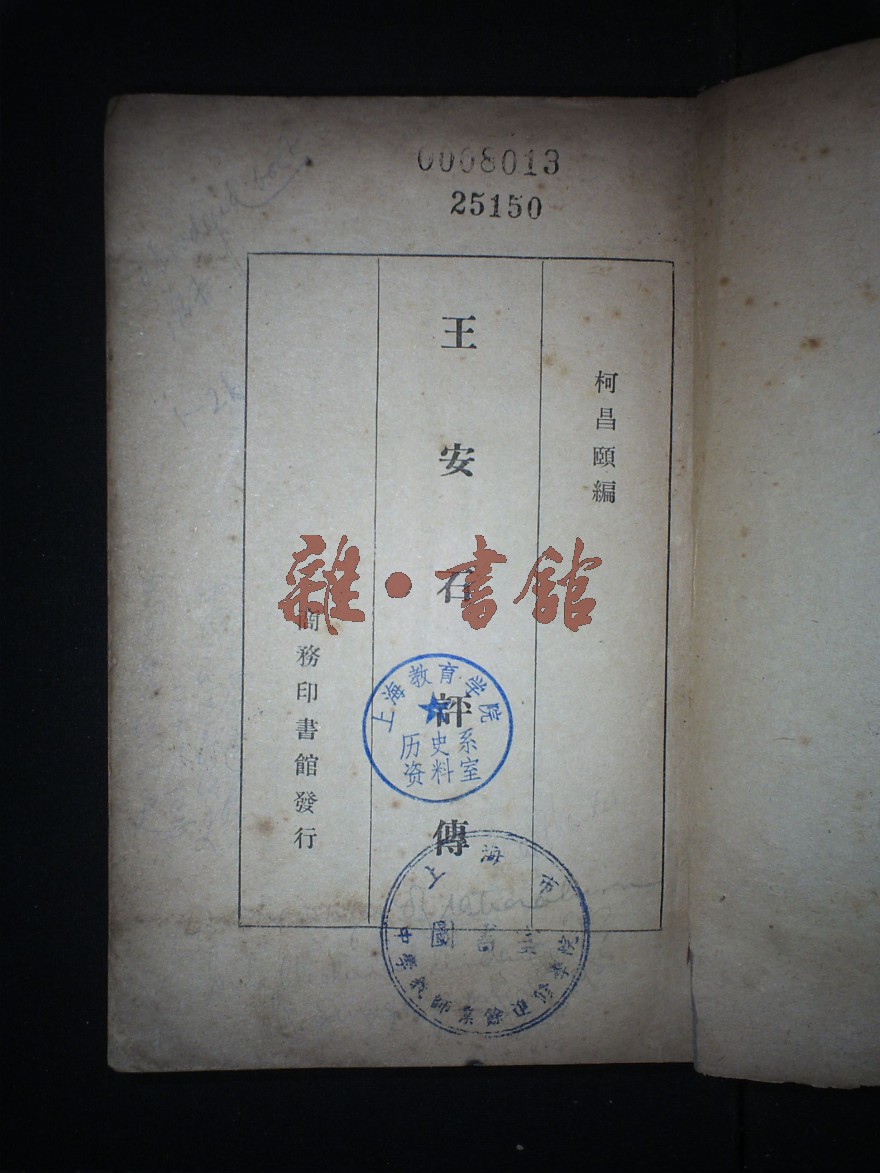 0008013
25150
柯昌頤編
王安石評傳
商務印書館發行
雜·書館
上海教育学院
历史系
资料室
圖書室